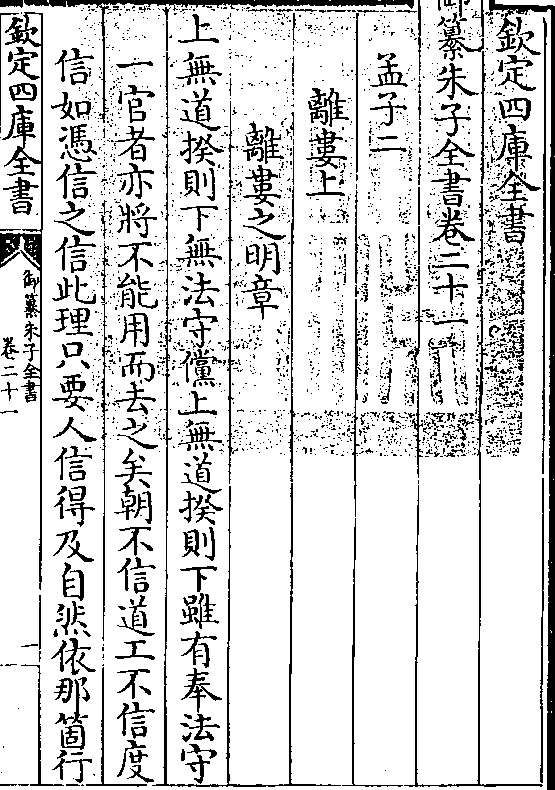 欽定四庫全書
御纂朱子全書卷二十一
孟子二
離婁上
離婁之明章
上無道揆則下無法守儻上無道揆則下雖有奉法守
一官者亦將不能用而去之矣朝不信道工不信度
信如憑信之信此理只要人信得及自然依那箇行
欽定四庫全書
御纂朱子全書
卷二十一
一